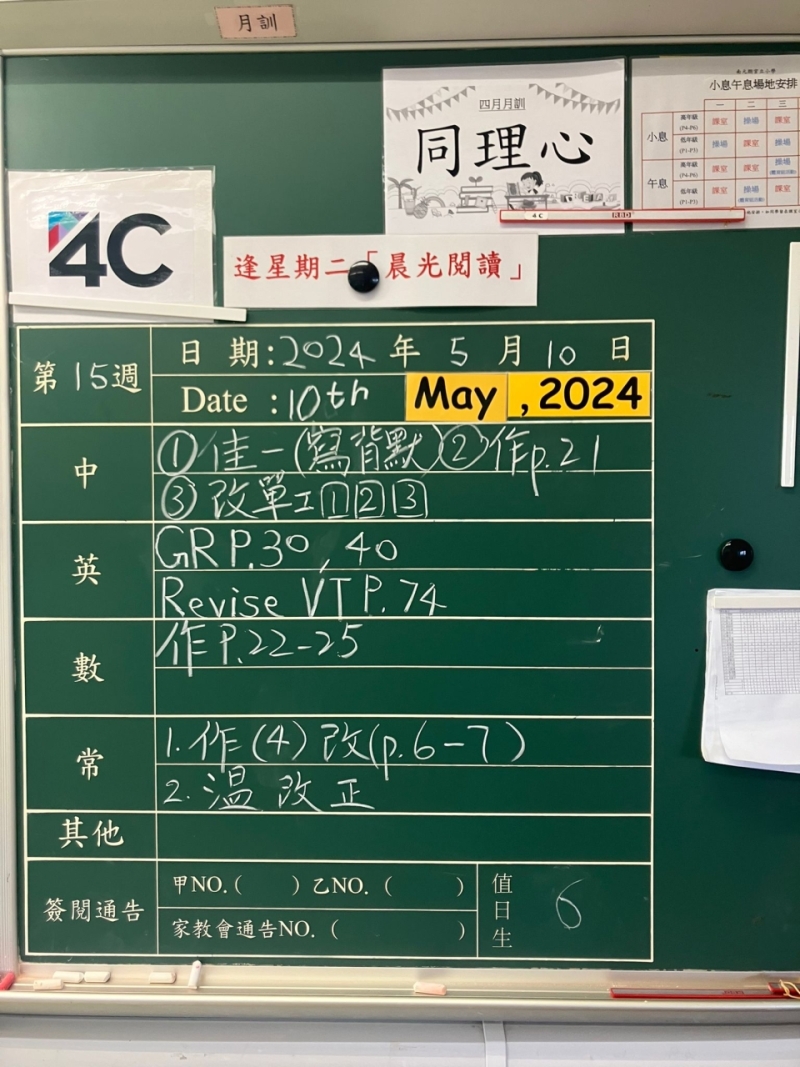 月訓
四月月訓
同理心
小息午息場地安排
一 二 三
小息 高年級 (P4-P6) 課室 操場 課室
低年級 (P1-P3) 操場 課室 操場
午息 高年級 (P4-P6) 課室 課室 操場
低年級 (P1-P3) 課室 操場 課室
4C
4C RED
逢星期二「晨光閱讀」
第15週 日期:2024年5月10日
Date :10th May , 2024
中 ①佳一(寫背默)②作p.21
③改單工1 2 3
英 GR P.30, 40
Revise VT P.74
數 作P.22-25
常 1.作(4)改(p.6-7)
2.溫改正
其他
簽閱通告 甲NO.( )乙NO.( )
家教會通告NO.( )
值日生 6